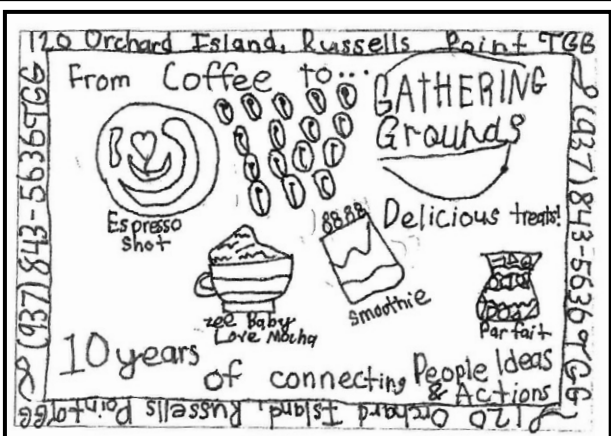 120 Orchard Island, Russells Point TGG
From Coffee to...
GATHERING
Grounds
Espresso
shot
Delicious treats!
zee Baby
Love Mocha
Smoothie
Parfait
10 years
of connecting People Ideas
& Actions
(937) 843-5636 TGG
(937) 843-5636 TGG
120 Orchard Island, Russells Point TGG